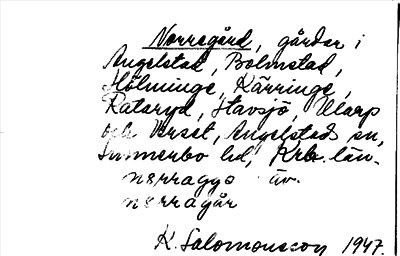 Norregård, gårdar i
Angelstad, Bolmstad,
Hölminge, Kärringe,
Rataryd, Havsjö, Ularp
och Verset, Angelstads sn,
Sunnerbo hd, Krb. län.
nørragys äv.
nørragår
K. Salomonsson 1947.